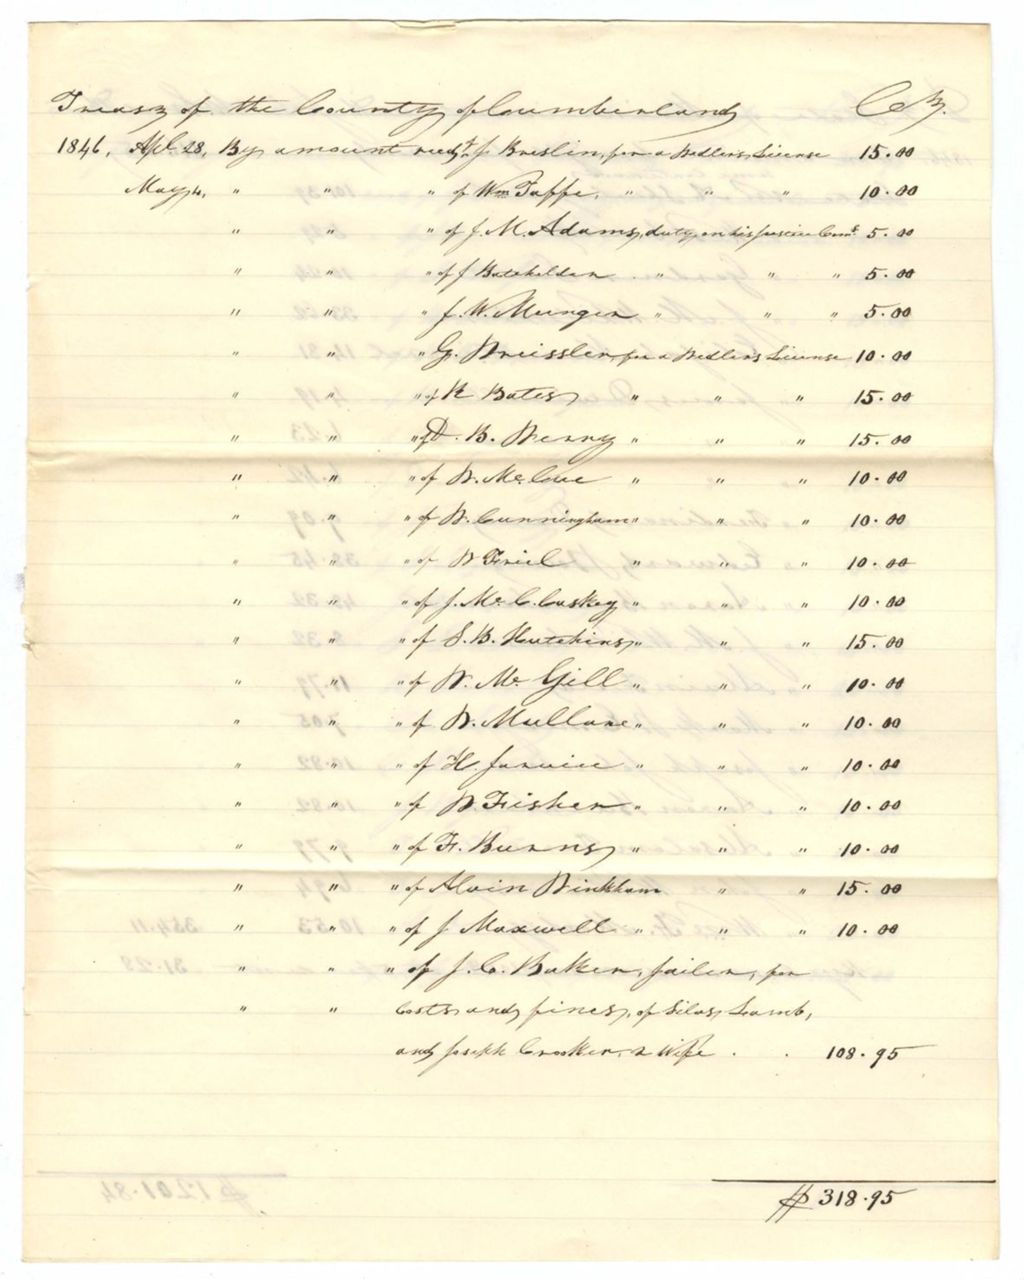 Treasy of the County of Cumberland Cr.
1846, Apl. 28, By amount recd. of J. Breslin, for a Pedlers License 15.00
May 4, " " " of Wm Taffe, " " " 10.00
" " " of J. M. Adams, duty on his Justice Coms. 5.00
" " " of J Batchelder " " " 5.00
" " " J. W. Munger " " " 5.00
" " " G. Dreissler, for a Pedlers License 10.00
" " " of R Bates, " " " 15.00
" " " of D. B. Penny " " " 15.00
" " " of P. McCue " " " 10.00
" " " of P. Cunningham " " " 10.00
" " " of P Friel " " " 10.00
" " " of J. Mc. C. Caskey " " " 10.00
" " " of S. B. Hutchins, " " " 15.00
" " " of P. Mc Gill " " " 10.00
" " " of P. Mullane " " " 10.00
" " " of H. " " " 10.00
" " " of P Fisher " " " 10.00
" " " of F. Burns, " " " 10.00
" " " of Alvin Pinkham " " 15.00
" " " of J. Maxwell " " " 10.00
" " " of J. C. Baker, Jailer, for
" " Costs and fines, of Silas Lamb,
and Joseph Crooker, & Wife . . 108.95
$ 318.95